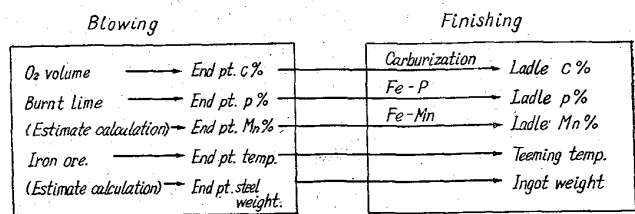 Blowing Finishing
O₂ volume End pt. C% Carburization Ladle C%
Burnt lime End pt. p% Fe-P Ladle p%
(Estimate calculation) End pt. Mn% Fe-Mn Ladle Mn%
Iron ore. End pt. temp. Teeming temp.
(Estimate calculation) End pt. steel weight. Ingot weight